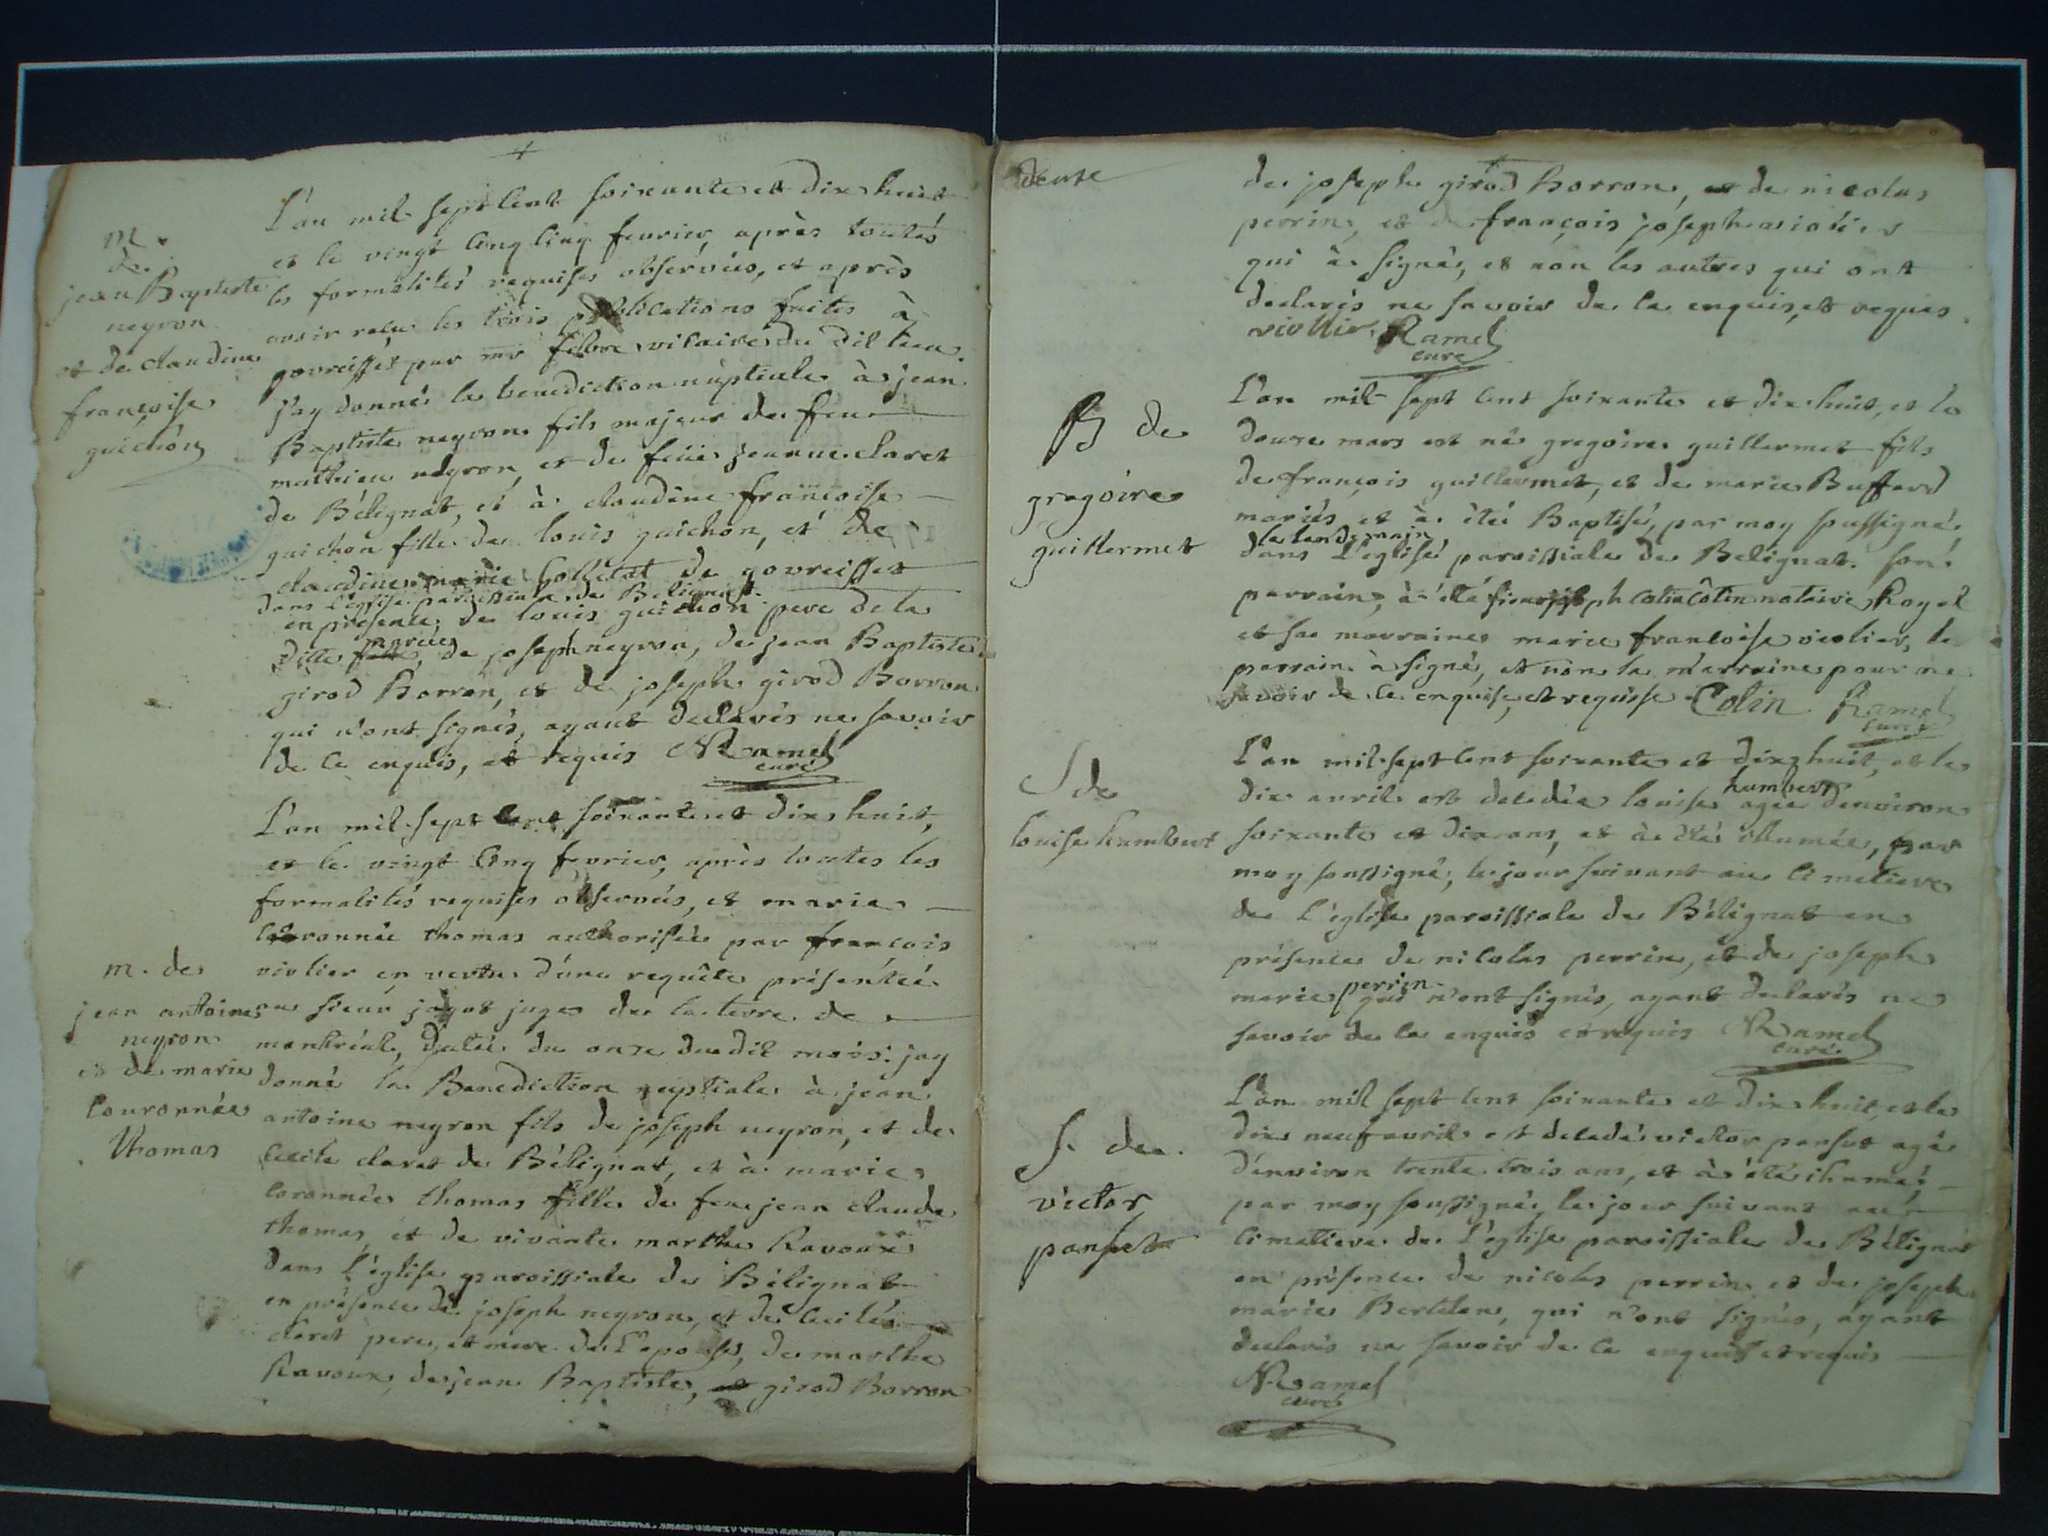 m.
de
jean Baptiste
neyron
et de claudine
francoise
guichon
L'an mil sept cent soixante et dix huit
et le vingt cinq fevrier, après toutes
les formalités requises observées, et après
avoir reçu les trois publications faites à
govreisset par mr febvre vicaire du dit lieu
j'ay donné la benediction nuptiale à jean
Baptiste neyron fils majeur de feu
mathieu neyron, et de feüe jeanne claret
de Bélignat, et à claudine francoise
guichon fille de louis guichon, et de
claudine marie Colletat de govreisset
dans l'église paroissiale de Belignat
en présence de louis guichon pere de la
ditte mariée, de joseph neyron, de jean Baptiste
girod Borron, et de joseph girod Borron
qui n'ont signés, ayant declarés ne savoir
de ce enquis, et requis Ramel
curé
L'an mil sept cent soixante et dix huit,
et le vingt cinq fevrier, après toutes les
formalités requises observées, et marie
couronnée thomas authorisée par francois
violier en vertu d'une requête présentée
au sieur jagot juge de la terre de
montréal, datée du onze du dit mois. jay
donné la Benediction nuptiale à jean
antoine neyron fils de joseph neyron, et de
Cecile claret de Bélignat, et à marie
coronnée thomas fille de feu jean claude
thomas, et de vivante marthe Ravoux
dans l'église paroissiale de Bélignat
en présence de joseph neyron, et de cecile
claret pere, et mere de l'epoux, de marthe
Ravoux, de jean Baptiste, girod Borron
m. de
jean antoine
neyron
et de marie
Couronnée
thomas
deuxe
de joseph girod Borron, et de nicolas
perrin, et de françois joseph violier
qui à signé, et non les autres qui ont
declarés ne savoir de ce enquis, et requis
viollier Ramel
curé
B de
gregoire
guillermet
L'an mil sept cent soixante et dix huit, et le
douze mars est né gregoire guillermet fils
de françois guillermet, et de marie Buffard
mariés et à été Baptisé, par moy soussigné,
le lendemain
dans l'église paroissiale de Belignat. son
parrain à été sieur joseph Colin notaire Royal
et sa marraine marie francoise violier, le
parrain à signé, et non la marraine pour ne
savoir de ce enquise, et requise Colin Ramel
curé
S de
louise humbert
L'an mil sept cent soixante et dix huit, et le
dix avril est decedée louise humbert agée d'environ
soixante et dix ans, et à été ihumée, par
moy soussigné, le jour suivant au cimetiere
de l'église paroissiale de Bélignat en
présence de nicolas perrin, et de joseph
marie perrin qui n'ont signés, ayant declarés ne
savoir de ce enquis et requis Ramel
curé
S. de
victor
panset
L'an mil sept cent soixante et dix huit, et le
dix neuf avril est decedé victor panset agé
d'environ trente trois ans, et à été ihumé,
par moy soussigné, le jour suivant au
cimetiere de l'église paroissiale de Bélignat
en présence de nicolas perrin, et de joseph
marie Bertelon, qui n'ont signés, ayant
declarés ne savoir de ce enquis et requis
Ramel
curé